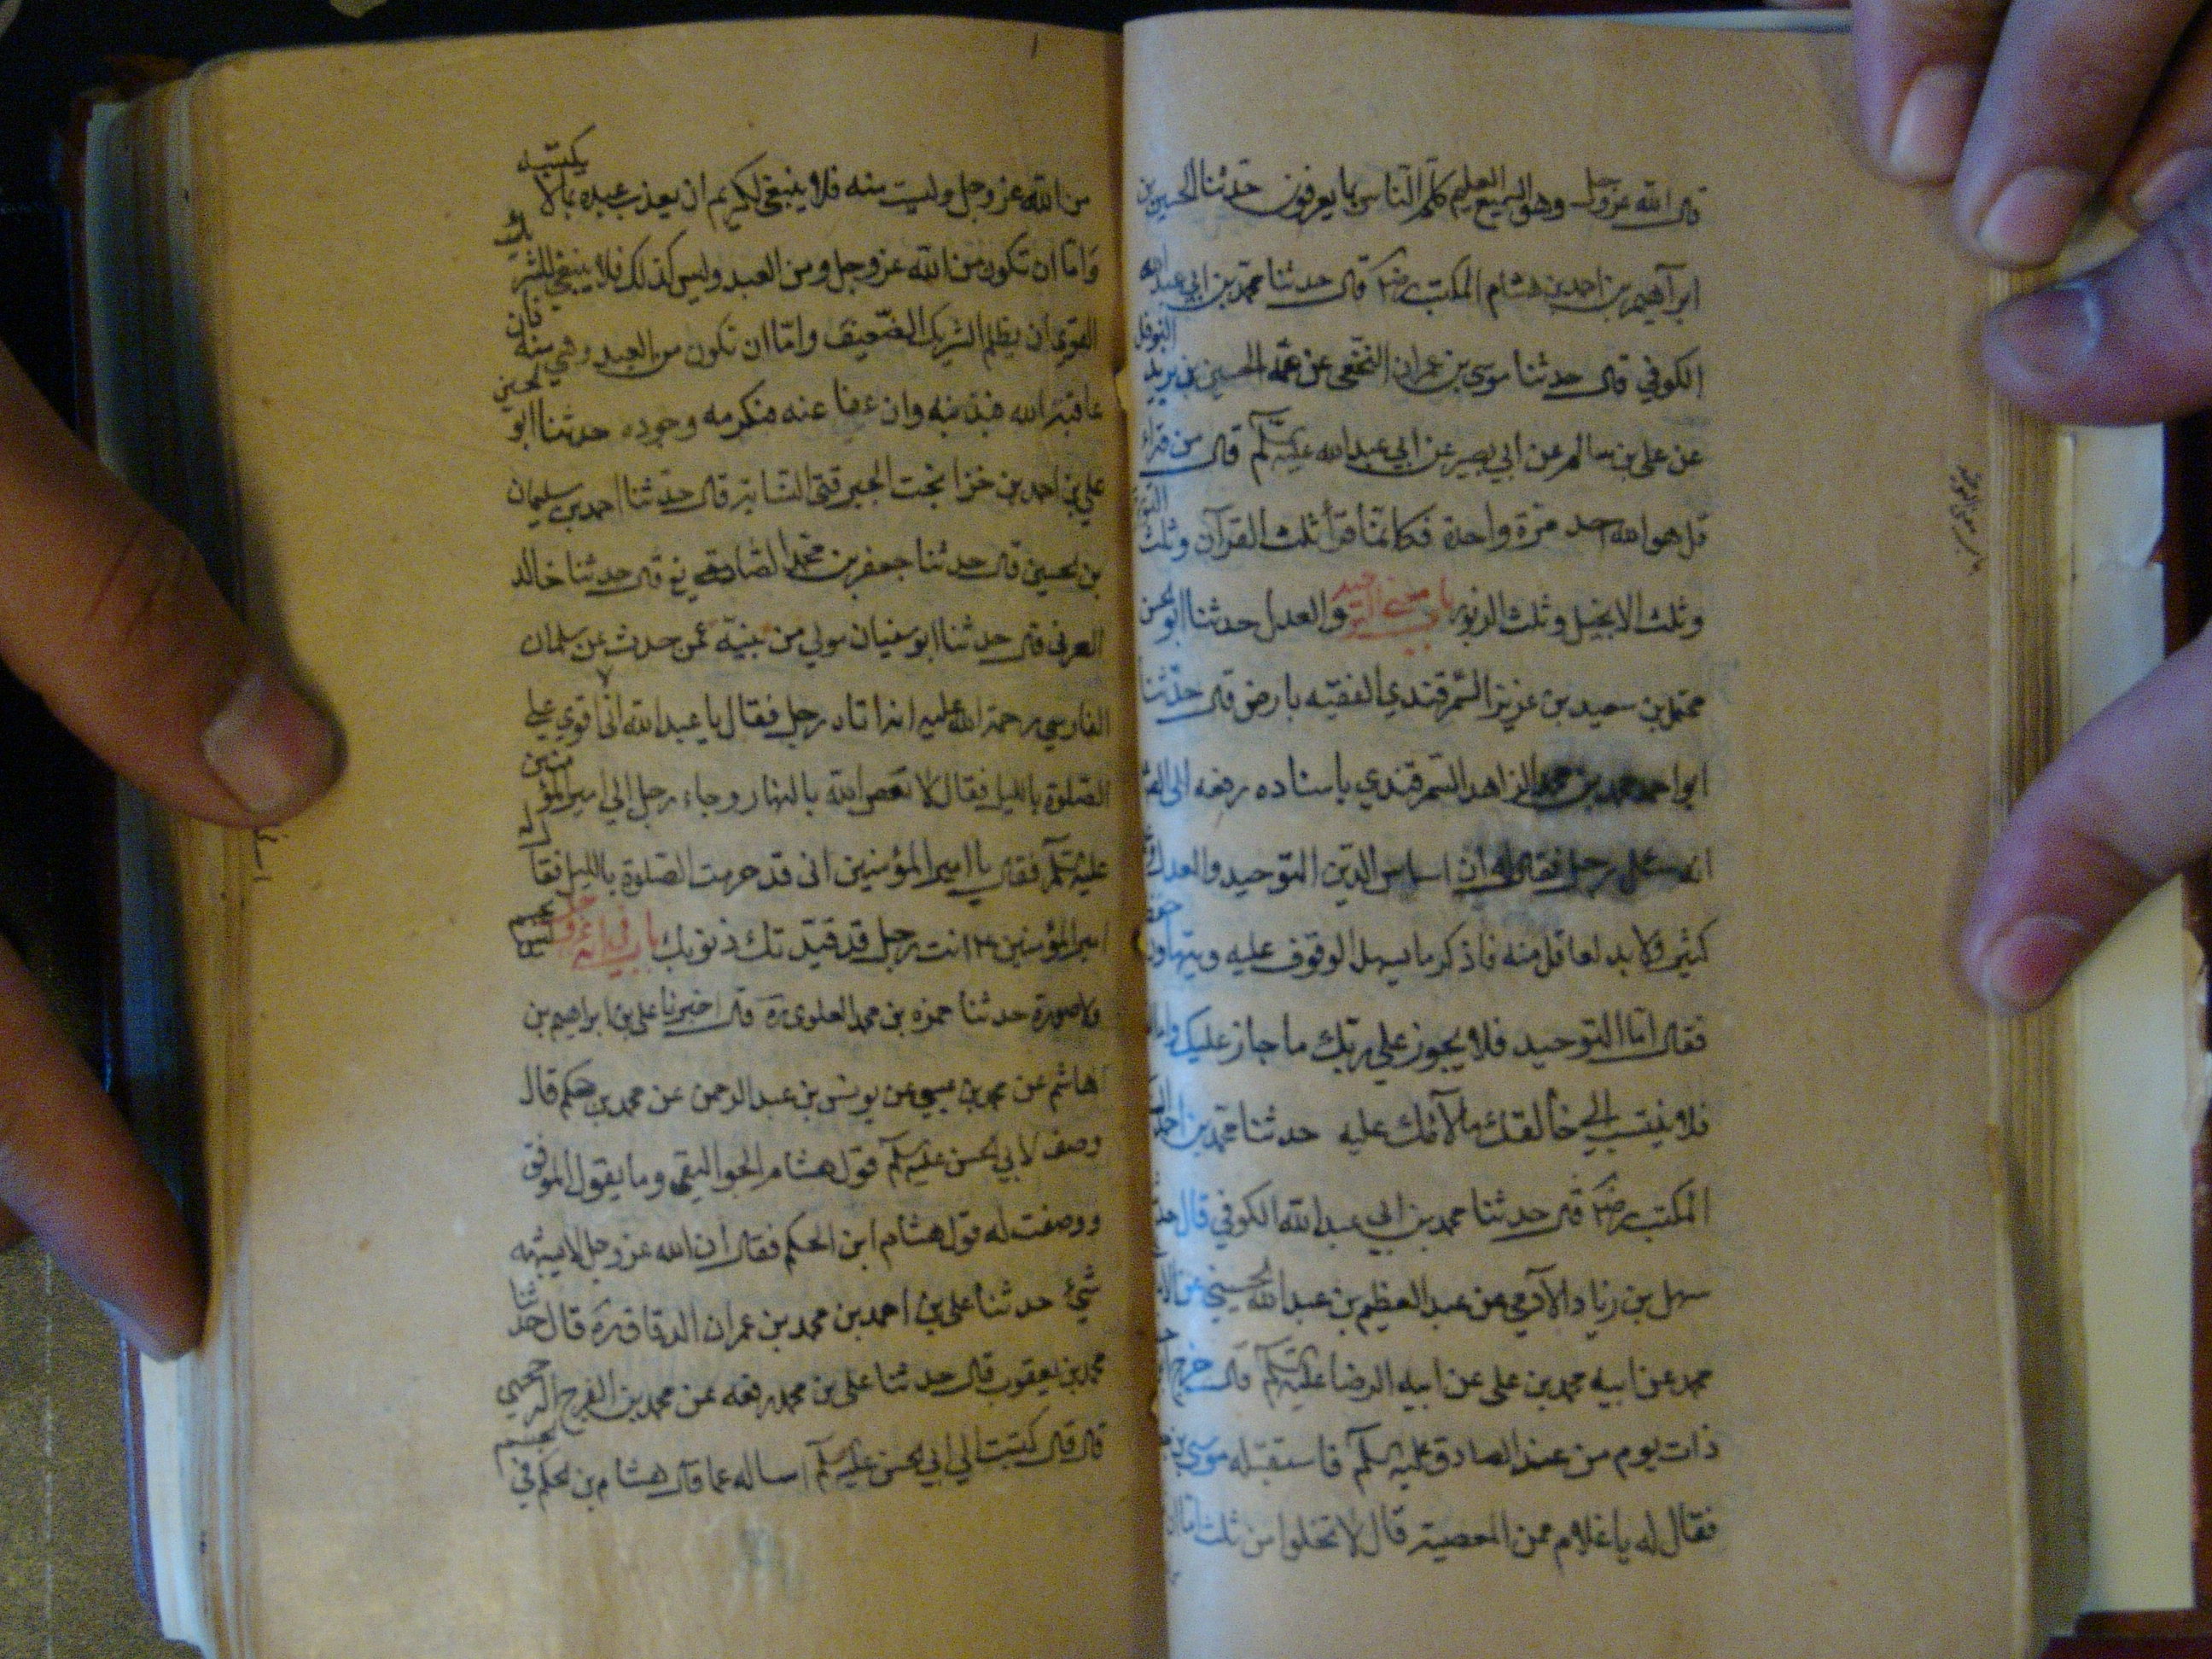 قال الله عز وجل وهو السميع العليم كلم الناس بما يعرفون حدثنا الحسين بن
ابراهيم بن احمد بن هشام المكتب رض قال حدثنا محمد بن ابي عبد الله
الكوفي قال حدثنا موسى بن عمران النخعي عن عمه الحسين بن يزيد النوفلي
عن علي بن سالم عن ابي بصير عن ابي عبد الله عليه السلم قال من قراء
قل هو الله احد مرة واحدة فكانما قرأ ثلث القرآن وثلث التورية
وثلث الانجيل وثلث الزبور باب معنى التوحيد والعدل حدثنا ابو الحسن
محمد بن سعيد بن عزيز السمرقندي الفقيه بارض قال حدثنا
ابو احمد محمد بن محمد الزاهد السمرقندي باسناده رفعه الى الصا
انه سئله رجل فقال له ان اساس الدين التوحيد والعدل
كثير ولا بد لعاقل منه فاذكر ما يسهل الوقوف عليه ويتهاون
فقال اما التوحيد فلا يجوز على ربك ما جاز عليك واما
فلا ينسب الى خالقك ما لامك عليه حدثنا محمد بن احمد
المكتب رض قال حدثنا محمد بن ابي عبد الله الكوفي قال
سهل بن زياد الآدمي عن عبد العظيم بن عبد الله الحسيني عن
محمد عن ابيه محمد بن علي عن ابيه الرضا عليه السلم قال خرج
ذات يوم من عند الصادق عليه السلم فاستقبله موسى بن
فقال له يا غلام ممن المعصية قال لا تخلوا من ثلث اما ان
من الله عز وجل وليست منه فلا ينبغي للكريم ان يعذب عبده بما لا يكتسبه
واما ان تكون من الله عز وجل ومن العبد وليس كذلك فلا ينبغي للشريك
القوي ان يظلم الشريك الضعيف واما ان تكون من العبد وهي منه فان
عاقبه الله فبذنبه وان عفا عنه فبكرمه وجوده حدثنا ابو الحسين
علي بن احمد بن خرابخت الجيرفتي النسابة قال حدثنا احمد بن سليمان
بن الحسين قال حدثنا جعفر بن محمد الصادقي قال حدثنا خالد
العرني قال حدثنا ابو سفيان مولى مزينة عمن حدث عن سلمان
الفارسي رحمة الله عليه انه اتاه رجل فقال يا عبد الله اني لا اقوي على
الصلوة بالليل فقال لا تعص الله بالنهار وجاء رجل الى امير المؤمنين
عليه السلم فقال يا امير المؤمنين اني قد حرمت الصلوة بالليل فقال له
امير المؤمنين انت رجل قد قيدتك ذنوبك باب في انه عز وجل ليس بجسم
ولا صورة حدثنا حمزه بن محمد العلوي ره قال اخبرنا علي بن ابراهيم بن
هاشم عن محمد بن عيسى عن يونس بن عبد الرحمن عن محمد بن حكيم قال
وصف لابي الحسن عليه السلم قول هشام الجواليقي وما يقول الموفق
ووصفت له قول هشام ابن الحكم فقال ان الله عز وجل لا يشبهه
شيء حدثنا علي بن احمد بن محمد بن عمران الدقاق ره قال حدثنا
محمد بن يعقوب قال حدثنا علي بن محمد رفعه عن محمد بن الفرج الرخجي
قال قال كتبت الى ابي الحسن عليه السلم اساله عما قال هشام بن الحكم في الجسم